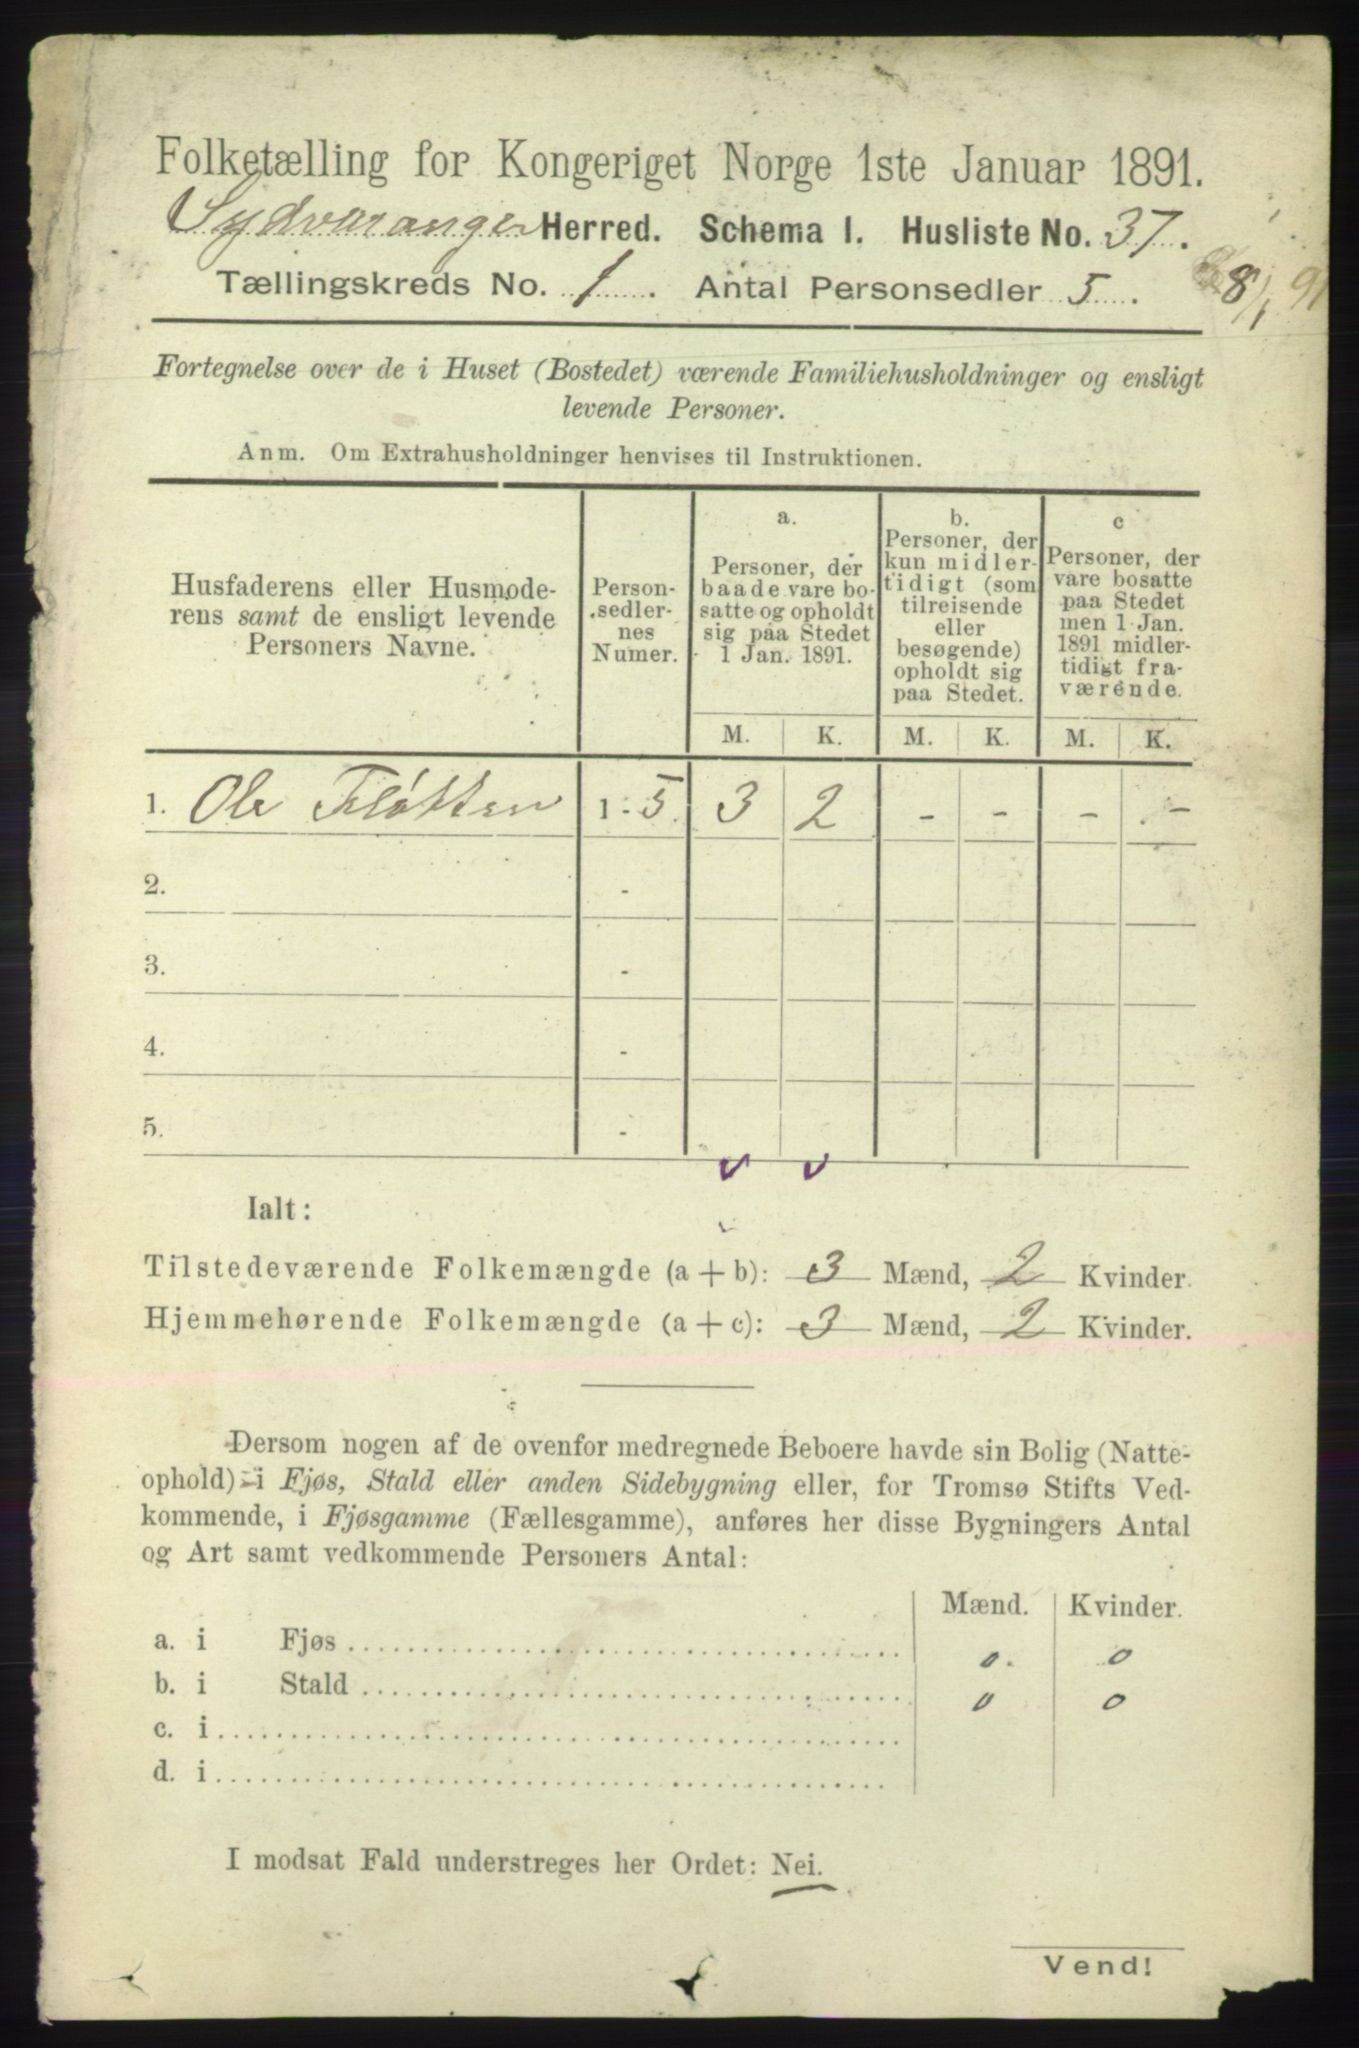 Folketælling for Kongeriget Norge 1ste Januar 1891.
Sydvaranger Herred. Schema I. Husliste No. 37.
Tællingskreds No. 1. Antal Personsedler 5. 8/1 91
Fortegnelse over de i Huset (Bostedet) værende Familiehusholdninger og ensligt
levende Personer.
Anm. Om Extrahusholdninger henvises til Instruktionen.
Husfaderens eller Husmode-
rens samt de ensligt levende
Personers Navne.
Person-
sedler-
nes
Numer.
a.
Personer, der
baade vare bo-
satte og opholdt
sig paa Stedet
1 Jan. 1891.
b.
Personer, der
kun midler-
tidigt (som
tilreisende
eller
besøgende)
opholdt sig
paa Stedet.
c
Personer, der
vare bosatte
paa Stedet
men 1 Jan.
1891 midler-
tidigt fra-
værende.
M. K. M. K. M. K.
1. Ole Fløtten 1-5. 3 2 - - - -
2. -
3. -
4. -
5. -
Ialt:
Tilstedeværende Folkemængde (a + b): 3 Mænd, 2 Kvinder.
Hjemmehørende Folkemængde (a + c): 3 Mænd, 2 Kvinder.
Dersom nogen af de ovenfor medregnede Beboere havde sin Bolig (Natte-
ophold) i Fjøs, Stald eller anden Sidebygning eller, for Tromsø Stifts Ved-
kommende, i Fjøsgamme (Fællesgamme), anføres her disse Bygningers Antal
og Art samt vedkommende Personers Antal:
Mænd. Kvinder.
a. i Fjøs 0. 0
b. i Stald 0 0
c. i
d. i
I modsat Fald understreges her Ordet: Nei.
Vend!